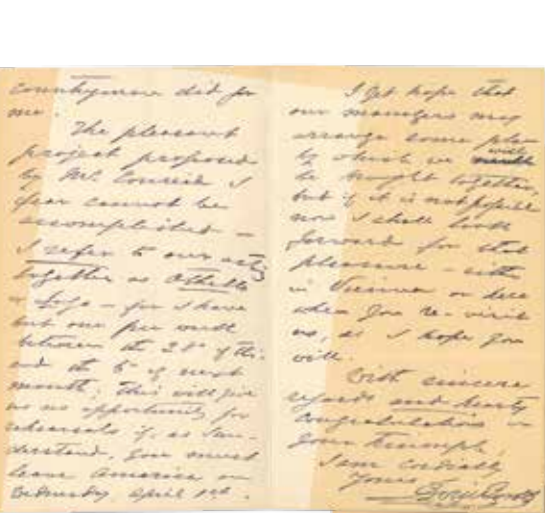 countrymen did for
me.
The pleasant
project proposed
by Mr. Conried I
fear cannot be
accomplished —
I refer to our acting
together as Othello
& Iago — for I have
but one free week
between the 28th of this
and the 6th of next
month; this will give
us no opportunity for
rehearsals if, as I un-
derstand, you must
leave America on
Wednesday, April
I yet hope that
our managers may
arrange some plan
by which we will
be brought together,
but if it is not possible
now I shall look
forward for that
pleasure — either
in Vienna or here
when you re-visit
us, as I hope you
will.
With sincere
regards and hearty
congratulations on
your triumph,
I am cordially
Yours